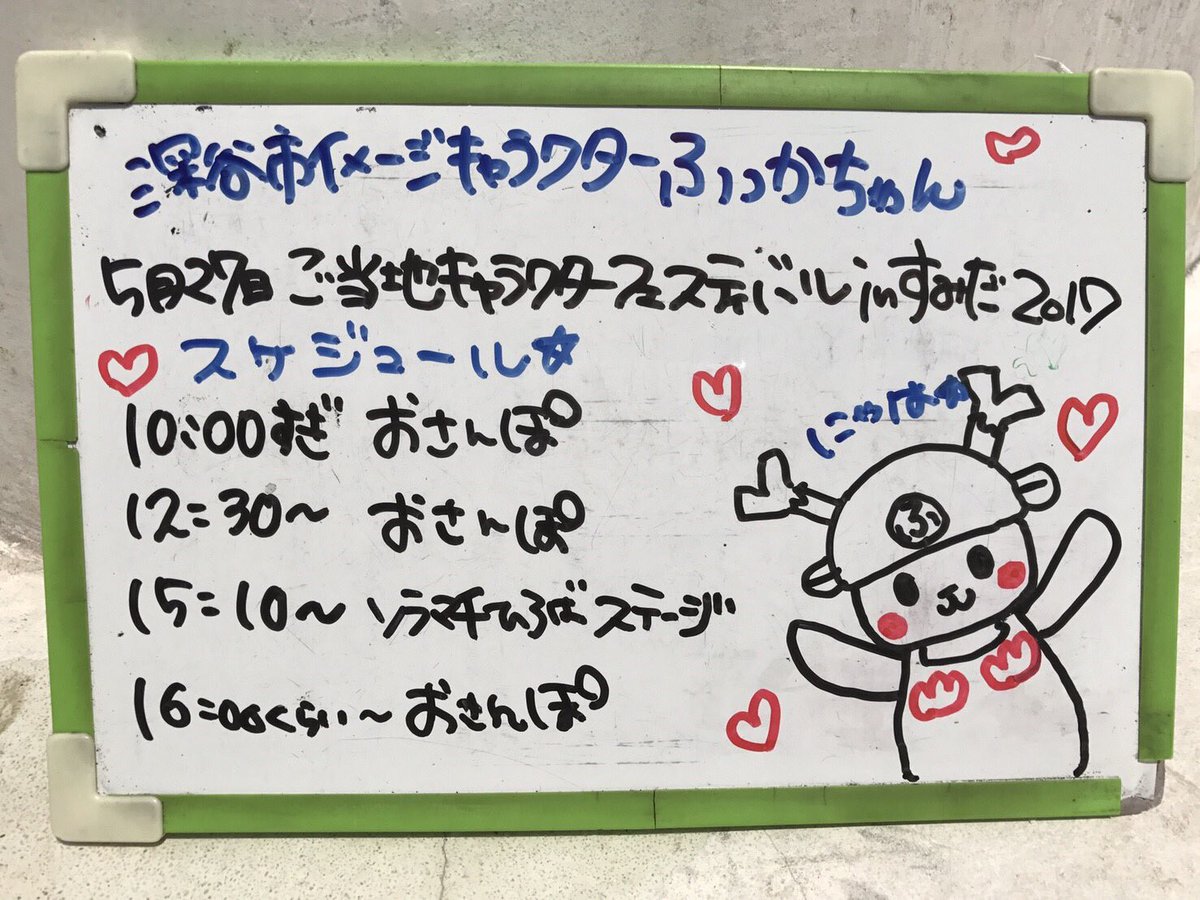 深谷市イメージキャラクターふっかちゃん
5月27日 ご当地キャラクターフェスティバルinすみだ2017
スケジュール☆
10:00すぎ おさんぽ
12:30〜 おさんぽ
15:10〜 ソラマチひろばステージ
16:00くらい〜 おさんぽ
にゃはね
ふ